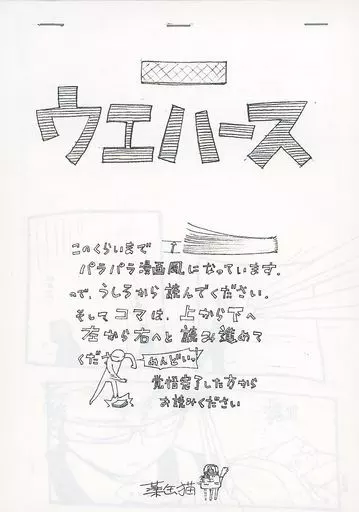 ウエハース
このくらいまで
パラパラ漫画風になっています。
ので、うしろから読んでください。
そして コマは、上から下へ
左から右へと読み進めて
ください
めんどい。
覚悟完了した方から
お読みください
薬缶猫